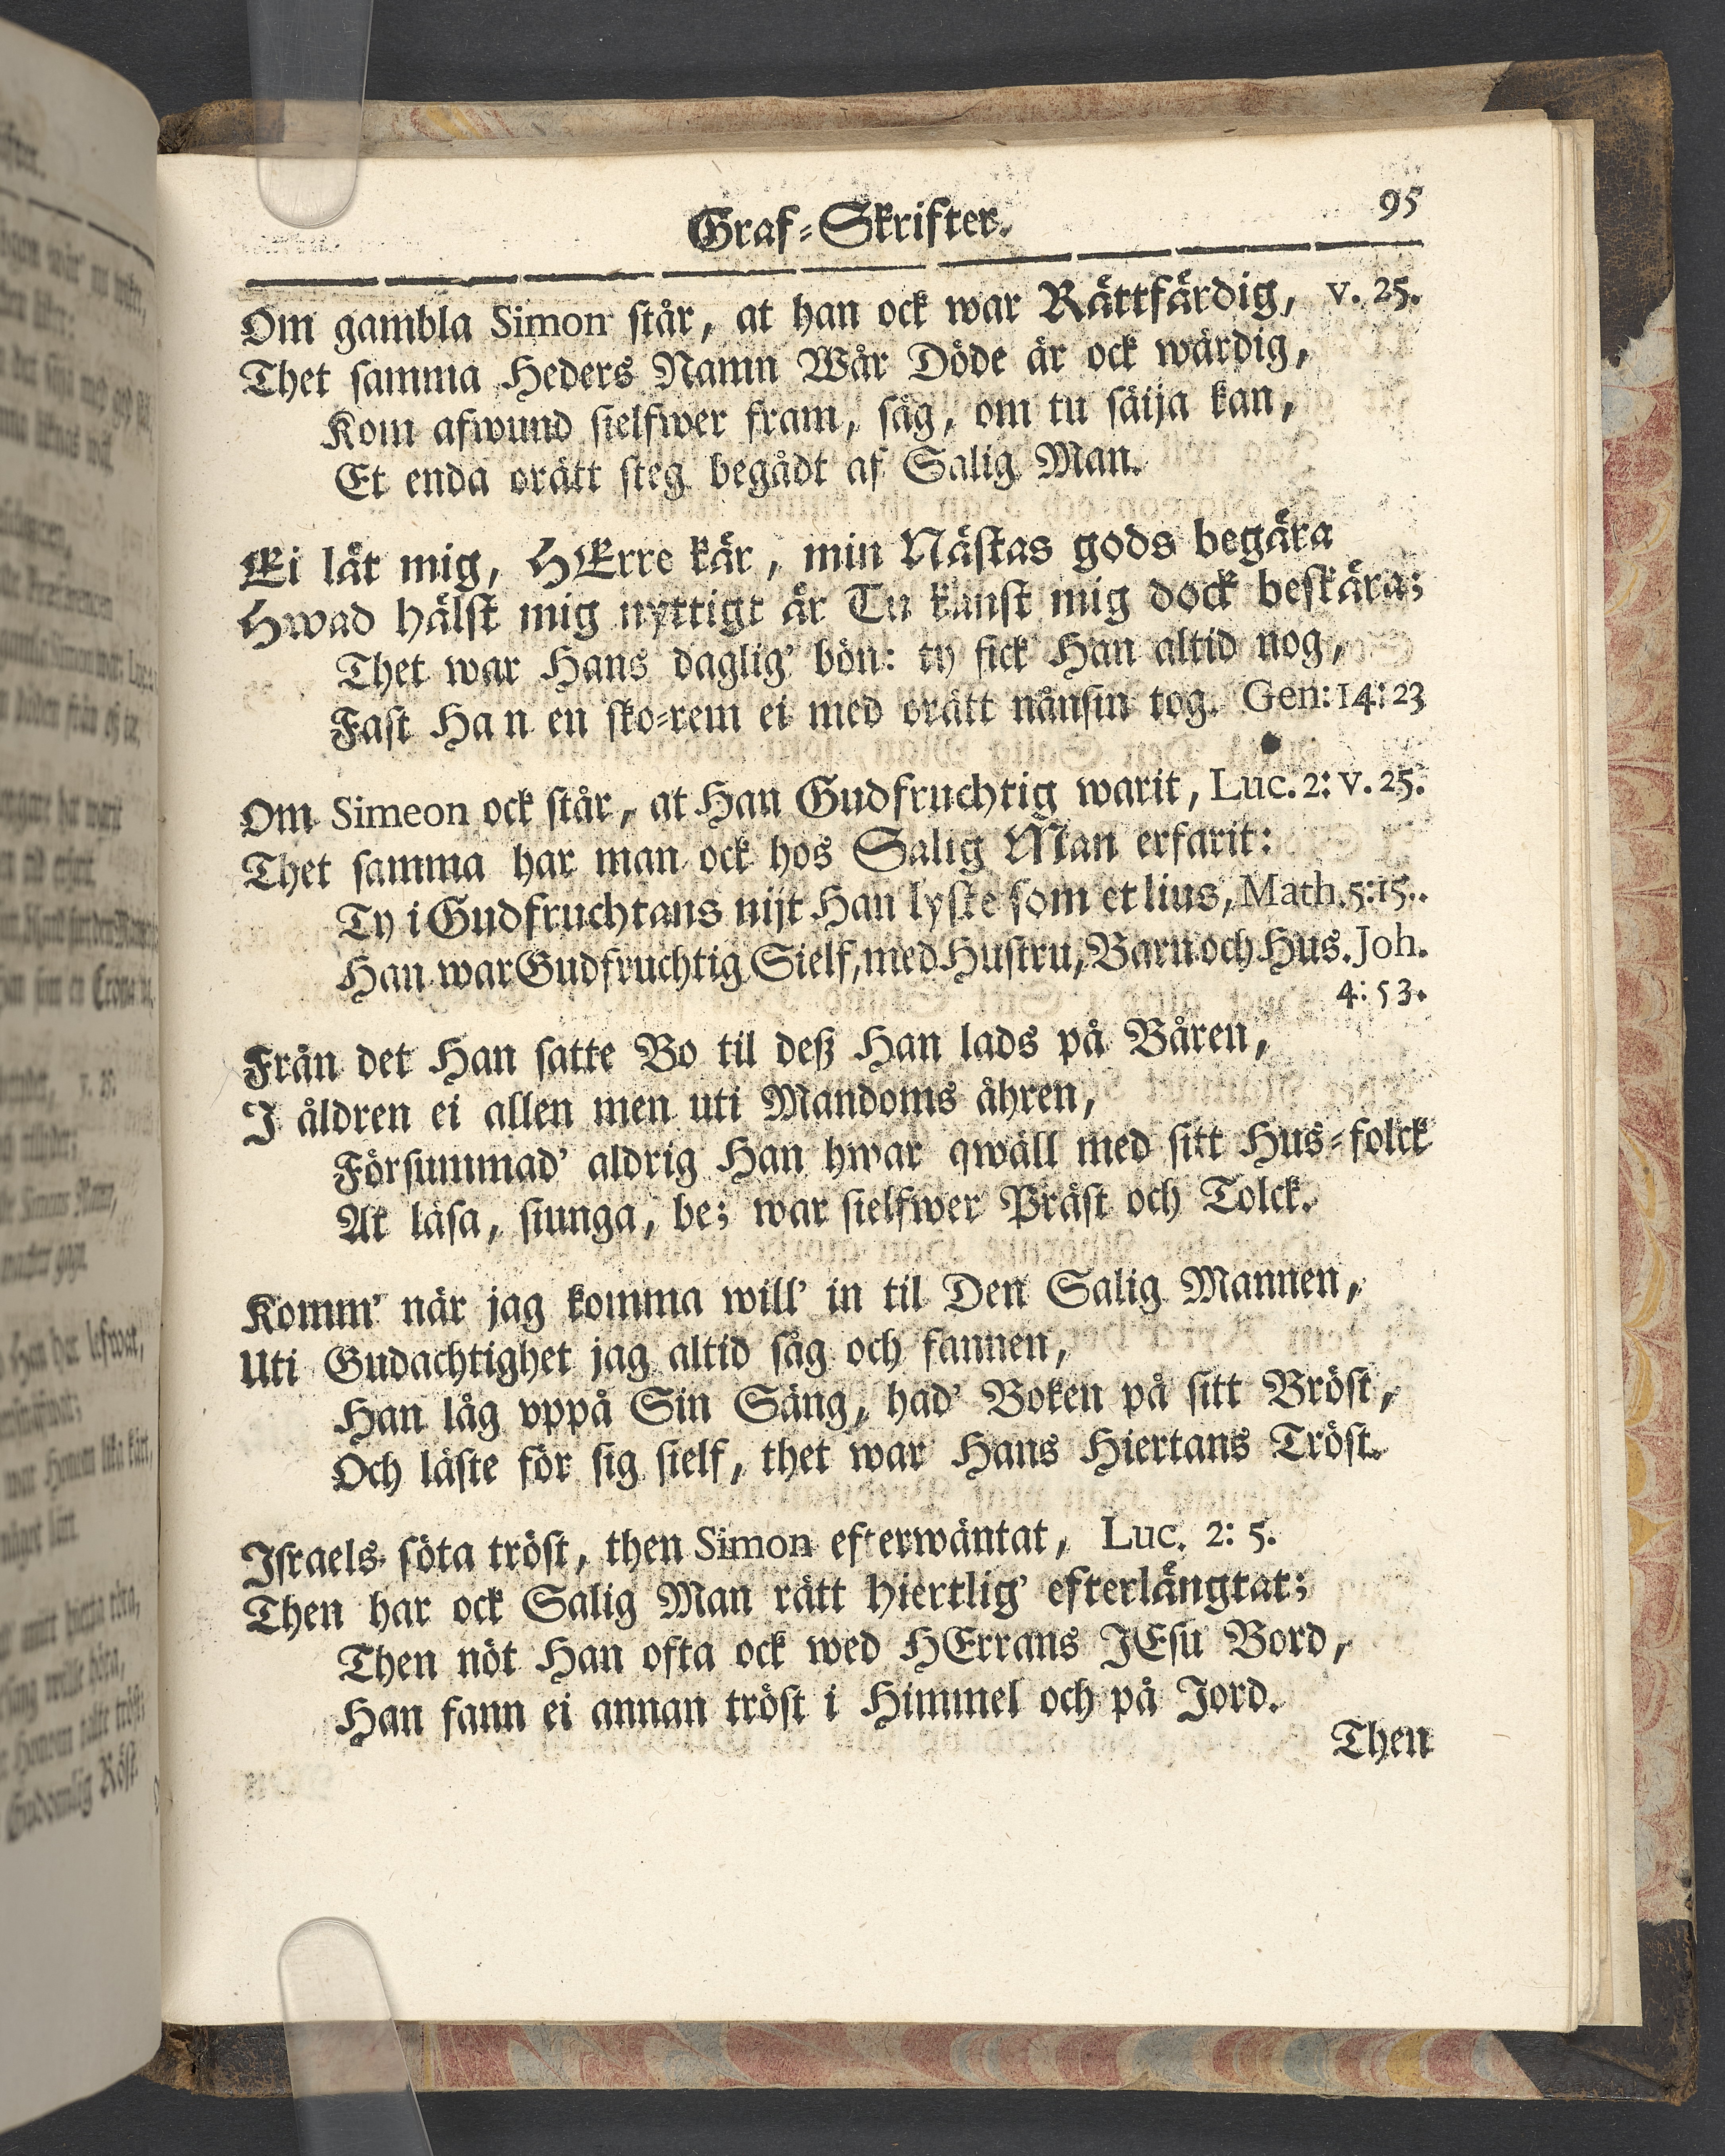 Graf-Skrifter. 95
Om gambla Simon står, at han ock war Rättfärdig, v. 25.
Thet samma Heders Namn Wår Döde är ock wärdig,
Kom afwund sielfwer fram, säg, om tu säija kan,
Et enda orätt steg begådt af Salig Man.
Ei låt mig, HErre kär, min Nästas gods begära
Hwad hälst mig nyttigt är Tu kanst mig dock beskära;
Thet war Hans daglig' bön: ty fick Han altid nog,
Fast Han en sko-rem ei med orätt nånsin tog. Gen: 14: 23
Om Simeon ock står, at Han Gudfruchtig warit, Luc. 2: v. 25.
Thet samma har man ock hos Salig Man erfarit:
Ty i Gudfruchtans nijt Han lyste som et lius, Math. 5: 15.
Han war Gudfruchtig Sielf, med Hustru, Barn och Hus. Joh.
4: 53.
Från det Han satte Bo til deß Han lads på Båren,
I åldren ei allen men uti Mandoms åhren,
Försummad' aldrig Han hwar qwäll med sitt Hus-folck
At läsa, siunga, be; war sielfwer Präst och Tolck.
Komm' när jag komma will' in til Den Salig Mannen,
Uti Gudachtighet jag altid såg och fannen,
Han låg vppå Sin Säng, had' Boken på sitt Bröst,
Och läste för sig sielf, thet war Hans Hiertans Tröst.
Israels söta tröst, then Simon efterwäntat, Luc. 2: 5.
Then har ock Salig Man rätt hiertlig' efterlängtat;
Then nöt Han ofta ock wed HErrans JEsu Bord,
Han fann ei annan tröst i Himmel och på Jord.
Then